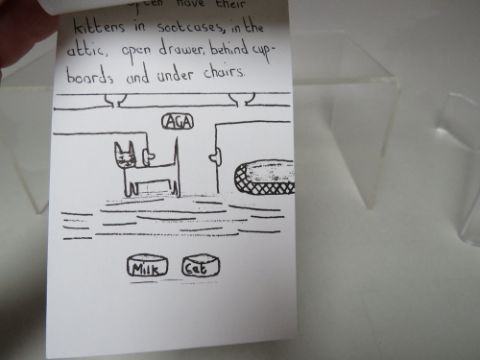 have their
kittens in sootcases, in the
attic, open drawer, behind cup-
boards and under chairs.
AGA
Milk Cat